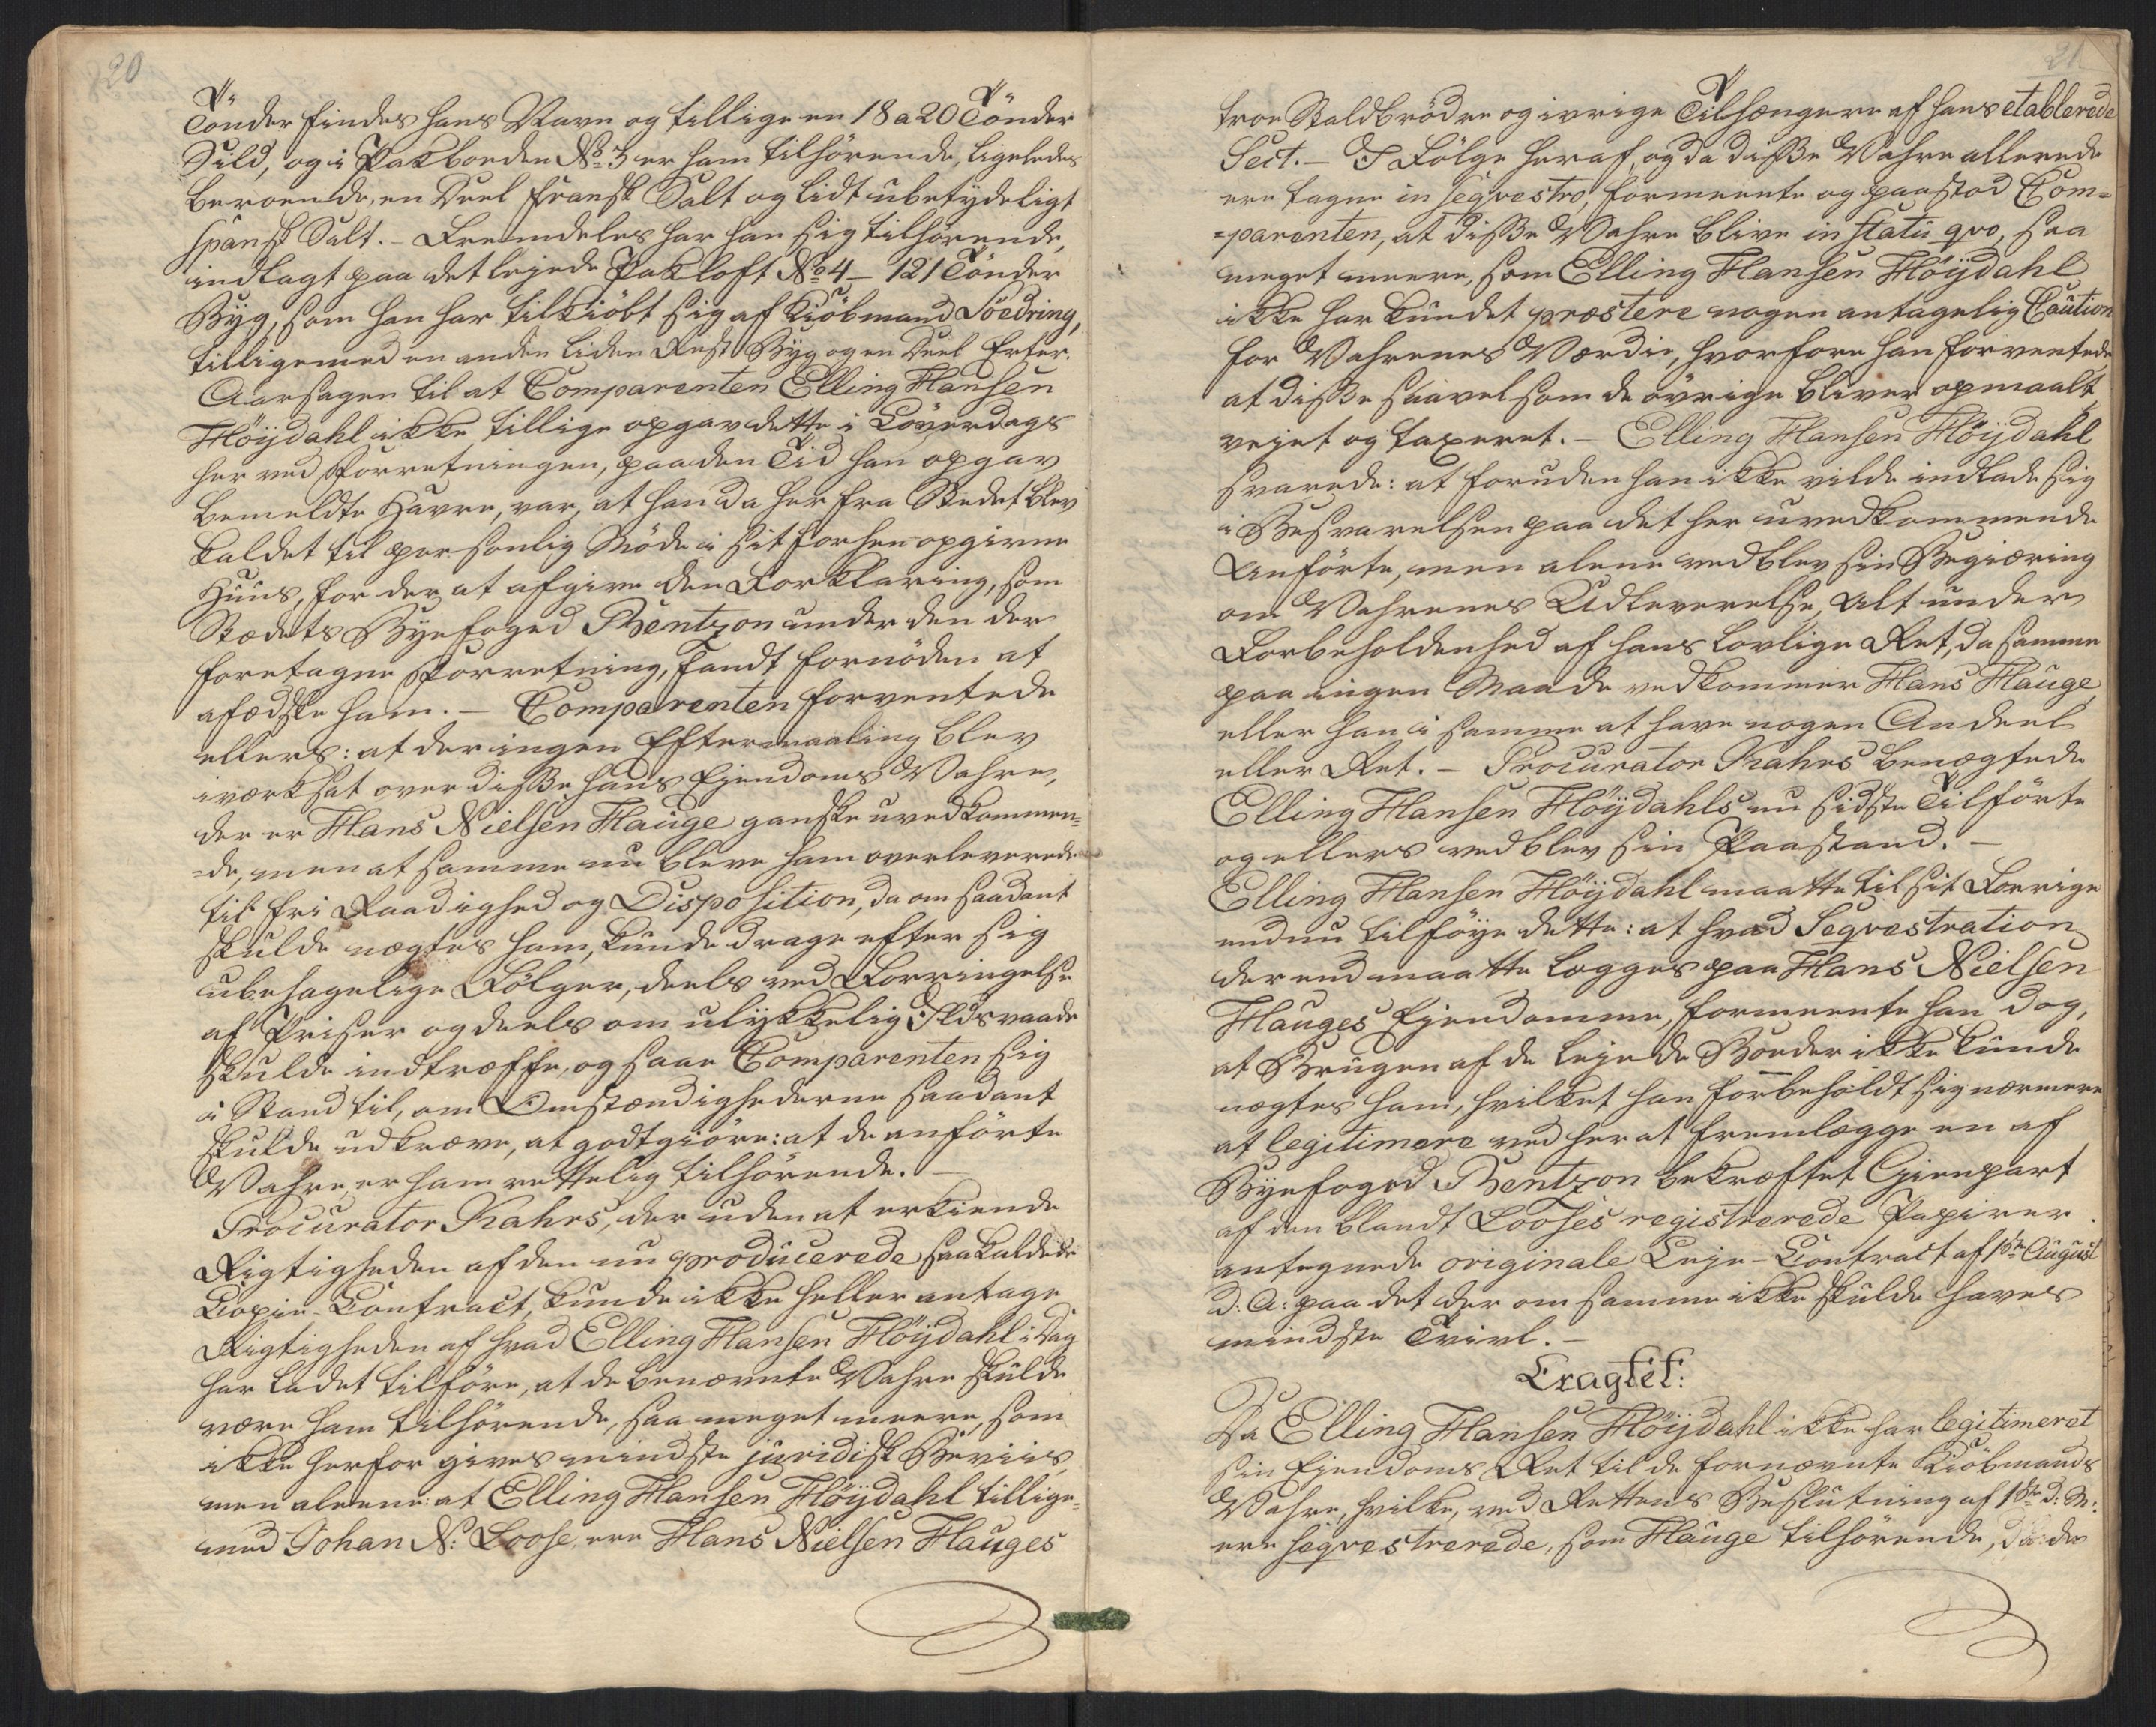 20
Tönder findes hans Navn og tillige en 18 a 20 Tönder
Sild, og i Pakboeden No. 3 er ham tilhörende, ligeledes
beroende, en Deel fransk Salt og lidt ubetydeligt
spansk Salt. – Fremdeles har han sig tilhörende,
indlagt paa det lejede Pakloft No 4 – 121 Tönder
Byg, som han har tilkiöbt sig af Kiöbmand Söedring,
tilligemed en anden liden Rest Byg og en Deel Erter.
Aarsagen til at Comparenten Elling Hansen
Höijdahl ikke tillige opgav dette i Löverdags
her ved Forretningen, paa den Tid han opgav
bemeldte Havre, var, at han da her fra Stedet blev
kaldet til personlig Möde i sit forhen opgivne
Huus, for der at afgive den Forklaring, som
Stædets Byefoged Bentzon under den der
foretagne Forretning, fandt fornöden at
afædske ham. – Comparenten forventede
ellers: at der ingen Eftermaaling blev
iværksat over disse hans Ejendoms Vahre,
der er Hans Nielsen Hauge ganske uvedkommen=
=de, men at samme nu bleve ham overleverede
til fri Raadighed og Disposition, da om saadant
skulde nægtes ham, kunde drage efter sig
ubehagelige Fölger, deels ved Forringelse
af Priser og deels om ulykkelig Ildsvaade
skulde indtræffe, og saae Comparenten sig
i Stand til, om Omstændighederne saadant
skulde udkræve, at godtgiöre: at de anförte
Vahre, er ham rettelig tilhörende. –
Procurator Krahes, der uden at erkiende
Rigtigheden af den nu producerede saa kaldede
Copie-Contract, kunde ikke heller antage
Rigtigheden af hvad Elling Hansen Höijdahl i Dag
har ladet tilföre, at de benævnte Vahre skulde
være ham tilhörende, saa meget meere, som
ikke herfor gives mindste juridisk Beviis,
men aleene: at Elling Hansen Höijdahl tillige=
med Johan N: Loose, ere Hans Nielsen Hauges
21
troe Staldbrödre og ivrige Tilhængere af hans etablerede
Sect. – I Fölge heraf, og da disse Vahre allerede
ere tagne in seqvestro, formeente og paastod Com=
=parenten, at disse Vahre blive in statu qvo, saa
meget meere, som Elling Hansen Höijdahl
ikke har kundet præstere nogen antagelig Caution
for Vahrenes Værdie, hvorfore han forventede,
at disse saavel som de övrige bliver opmaalt,
vejet og taxeret. – Elling Hansen Höijdahl
svarede: at foruden han ikke vilde indlade sig
i Besvarelsen paa det her uvedkommende
Anförte, men alene vedblev sin Begiæring
om Vahrenes Udleverelse, Alt under
Forbeholdenhed af hans lovlige Ret, da samme
paa ingen Maade vedkommer Hans Hauge,
eller han i samme at have nogen Andeel
eller Ret. – Procurator Krahes benægtede
Elling Hansen Höijdahls nu sidste Tilförte
og ellers vedblev sin Paastand. –
Elling Hansen Höijdahl maatte til sit Forrige
endnu tilföye dette: at hvad Seqvestration
der end maatte lægges paa Hans Nielsen
Hauges Ejendomme, formeente han dog,
at Brugen af de lejede Boeder ikke kunde
nægtes ham, hvilket han forbeholdt sig nærmere
at legitimere ved her at fremlægge en af
Byefoged Bentzon bekræftet Gienpart
af den blandt Looses registrerede Papirer
antegnede originale Leje-Contract af 1ste August
d: A: paa det der om samme ikke skulde haves
mindste Tvivl. –
Eragtet:
Da Elling Hansen Höijdahl ikke har legitimeret
sin Ejendoms Ret til de fornævnte Kiöbmands
Vahre, hvilke, ved Rettens Beslutning af 18de d: M:
ere seqvestrerede, som Hauge tilhörende, da der